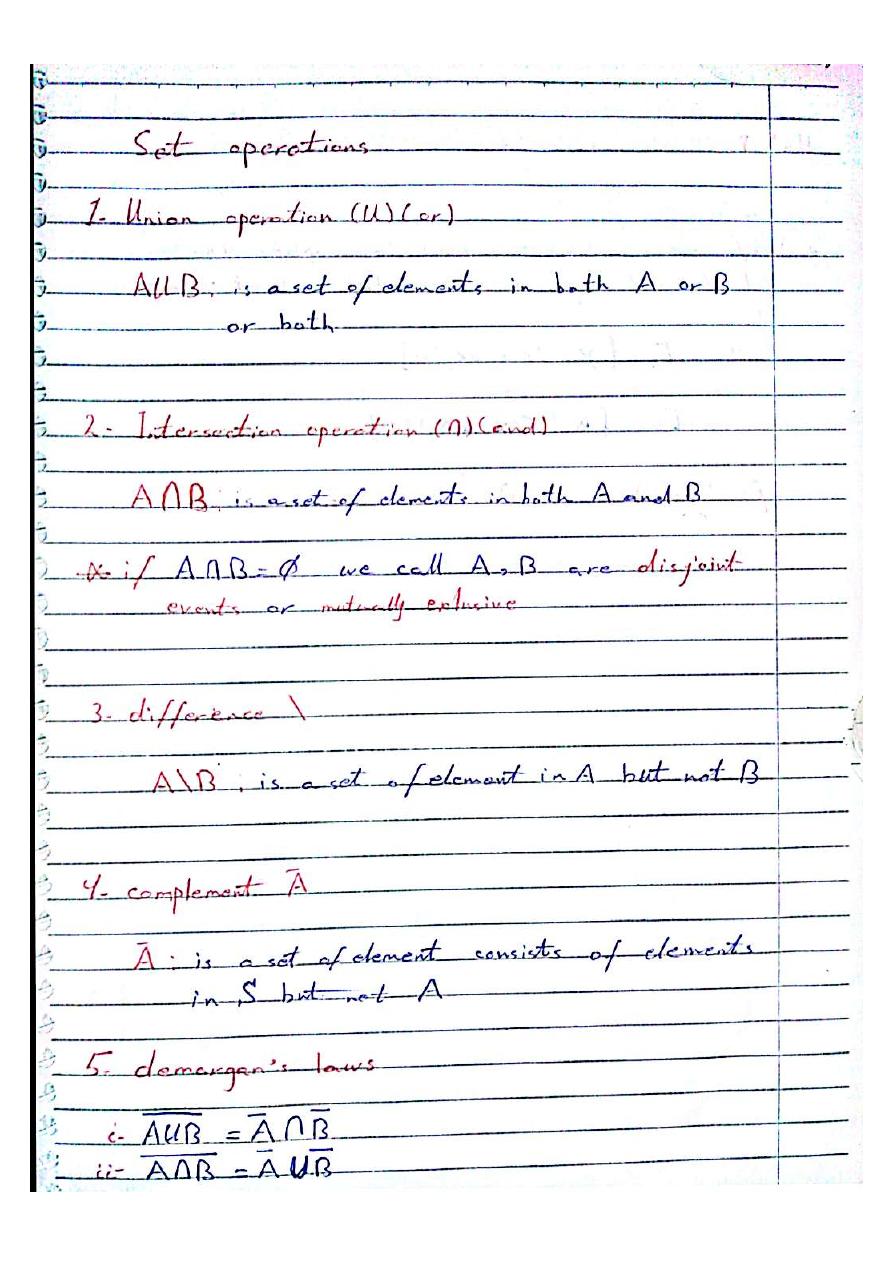 Set operations
1- Union operation (U) (or)
AUB: is a set of elements in both A or B
or both
2- Intersection operation (∩) (and)
A∩B: is a set of elements in both A and B
* if A∩B = ∅ we call A, B are disjoint
events or mutually exlusive
3- difference \
A\B: is a set of element in A but not B
4- complement A̅
A̅: is a set of element consists of elements
in S but not A
5- demorgan's laws
i- A̅U̅B̅ = A̅ ∩ B̅
ii- A̅∩̅B̅ = A̅ U B̅